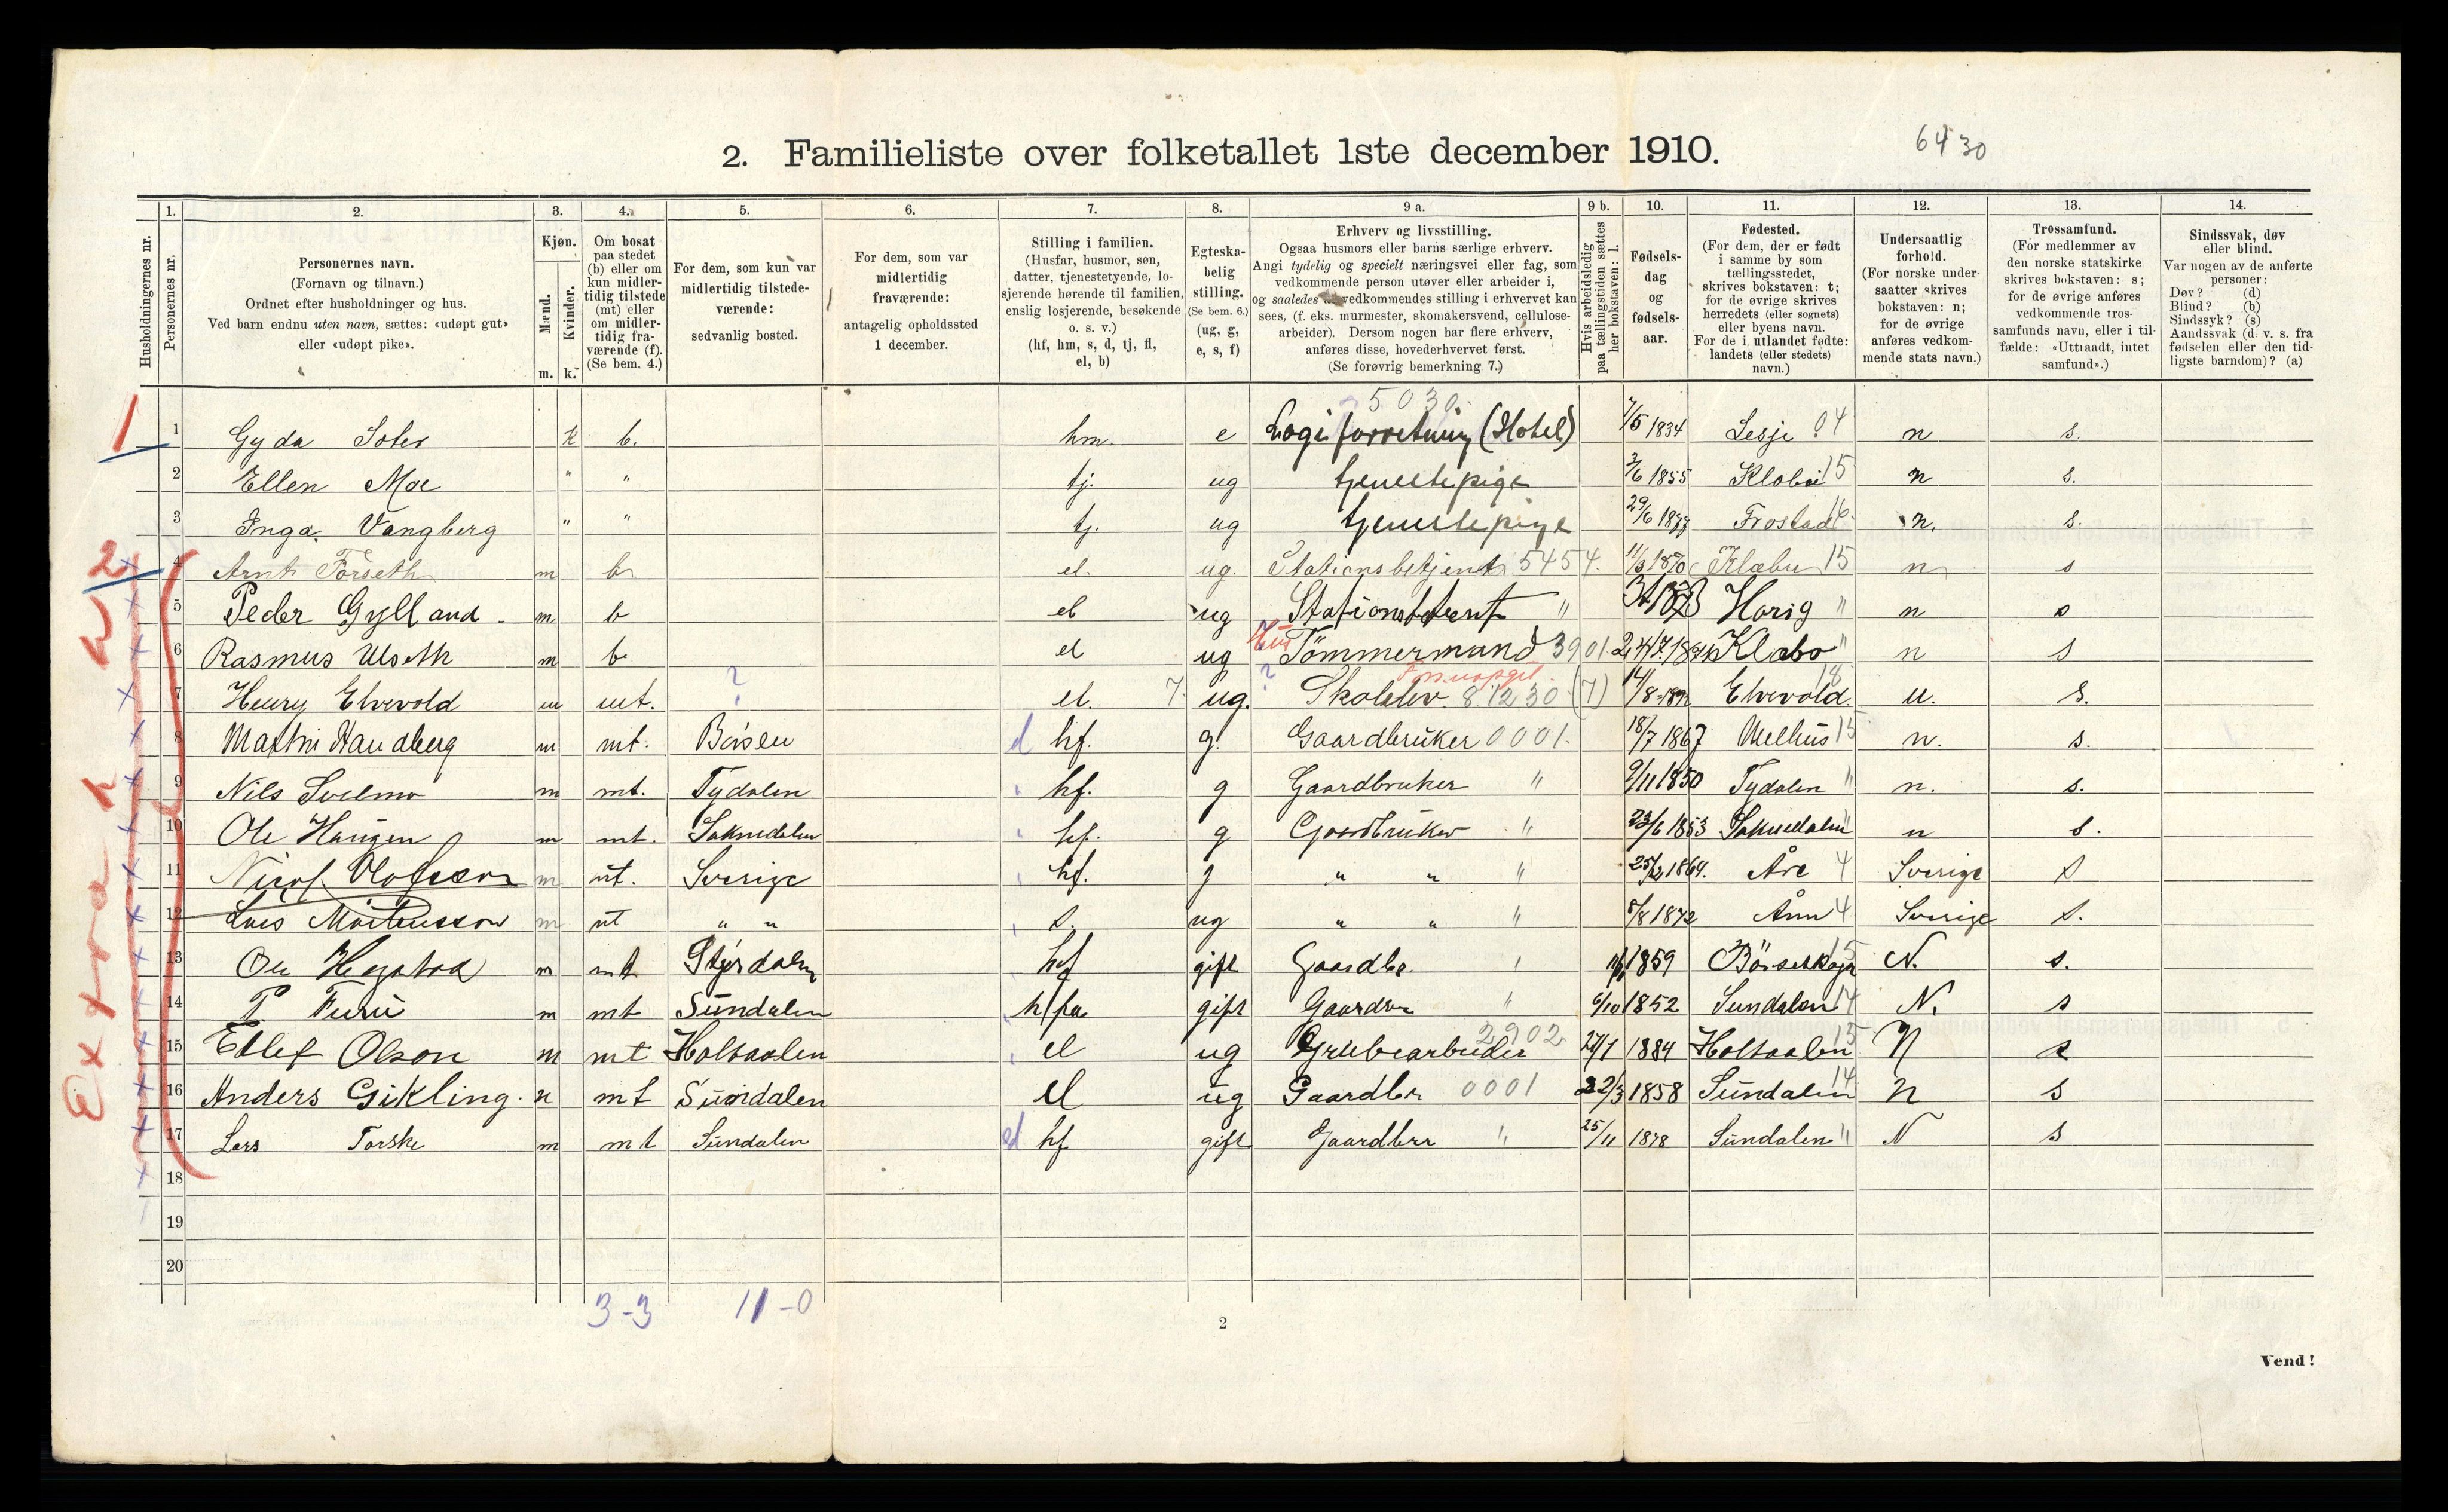 2. Familieliste over folketallet 1ste december 1910.
64 30
1. 2. 3. 4. 5. 6. 7. 8. 9 a. 9 b. 10. 11. 12. 13. 14.
Husholdningernes nr.
Personernes nr.
Personernes navn.
(Fornavn og tilnavn.)
Ordnet efter husholdninger og hus.
Ved barn endnu uten navn, sættes: «udøpt gut»
eller «udøpt pike».
Kjøn.
Mænd.
Kvinder.
m. k.
Om bosat
paa stedet
(b) eller om
kun midler-
tidig tilstede
(mt) eller
om midler-
tidig fra-
værende (f).
(Se bem. 4.)
For dem, som kun var
midlertidig tilstede-
værende:
sedvanlig bosted.
For dem, som var
midlertidig
fraværende:
antagelig opholdssted
1 december.
Stilling i familien.
(Husfar, husmor, søn,
datter, tjenestetyende, lo-
sjerende hørende til familien,
enslig losjerende, besøkende
o. s. v.)
(hf, hm, s, d, tj, fl,
el, b)
Egteska-
belig
stilling.
(Se bem. 6.)
(ug, g,
e, s, f)
Erhverv og livsstilling.
Ogsaa husmors eller barns særlige erhverv.
Angi tydelig og specielt næringsvei eller fag, som
vedkommende person utøver eller arbeider i,
og saaledes at vedkommendes stilling i erhvervet kan
sees, (f. eks. murmester, skomakersvend, cellulose-
arbeider). Dersom nogen har flere erhverv,
anføres disse, hovederhvervet først.
(Se forøvrig bemerkning 7.)
Hvis arbeidsledig
paa tællingstiden sættes
her bokstaven: l.
Fødsels-
dag
og
fødsels-
aar.
Fødested.
(For dem, der er født
i samme by som
tællingsstedet,
skrives bokstaven: t;
for de øvrige skrives
herredets (eller sognets)
eller byens navn.
For de i utlandet fødte:
landets (eller stedets)
navn.)
Undersaatlig
forhold.
(For norske under-
saatter skrives
bokstaven: n;
for de øvrige
anføres vedkom-
mende stats navn.)
Trossamfund.
(For medlemmer av
den norske statskirke
skrives bokstaven: s;
for de øvrige anføres
vedkommende tros-
samfunds navn, eller i til-
fælde: «Uttraadt, intet
samfund».)
Sindssvak, døv
eller blind.
Var nogen av de anførte
personer:
Døv? (d)
Blind? (b)
Sindssyk? (s)
Aandssvak (d. v. s. fra
fødselen eller den tid-
ligste barndom)? (a)
5030.
1 1 Gyda k b. hm. e Logiforretning (Hotel) 7/5 1834 Lesje 04 n s.
2 Ellen Moe " " tj. ug tjenestepige 3/6 1855 15 n s.
3 Inga Vangberg " " tj. ug tjenestepige 29/6 1877 16 n. s.
2 4 Arnt Forseth m b el. ug. Stationsbetjent 5454. 1870 Klæbu 15 n s
5 Peder Gylland m b el ug " Horig " n s
6 Rasmus Ulseth m b el ug Hus Tömmermand 3901 Klæbo " n s
7 Henry Elvevold m mt. ? el. 7 ug. ? Skolelev 81230 (7) Elvevold 18 n. s.
8 Martin Handberg m mt. Börsen d hf. g. Gaardbruker 0001. 18/7 1867 Melhus 15 n. s.
9 Nils m mt. Tydalen hf. g Gaardbruker " 9/11 1850 Tydalen " n. s.
10 Ole Haugen m mt. Soknedalen hf. g Gaardbruker " 23/6 1853 Soknedalen " n s.
11 Olofsson m mt. Sverige hf. g " " " 1864. Åre 4 Sverige s
12 Lars Mårtensson m mt " " s. ug " " " 1872 Ånn 4 Sverige s.
13 Ole m mt Stjørdalen hf gift Gaardbr 1859 Börseskogn 15 N. s.
14 P Furu m mt Sundalen gift " 6/10 1852 Sundalen 14 N. s
15 Ellef Olson m mt Holtaalen el ug Grubearbeider 2902 27/1 1884 Holtaalen 15 N s
16 Anders Gikling. m mt Sundalen el ug Gaardbr 0001 22/3 1858 Sundalen 14 N s
17 Lars Torske m mt Sundalen el hf gift Gaardbr " 25/11 1878 Sundalen " N s
18
19
20
Extra h h
3-3 11-0
2
Vend!